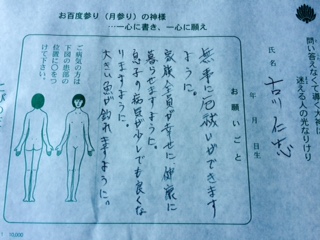 お百度参り（月参り）の神様
…一心に書き、一心に願え
問い答えなくて導く大神は
迷える人の光なりけり
氏名
古川仁志
年 月 日生
お願いごと
無事に厄祓いができます
ように。
家族全員が幸せに健康に
暮らせますように。
息子の
でも良くな
りますように。
大きい魚が釣れますように。
ご病気の方は
下図の患部の
位置に〇をつ
けて下さい。
10,000